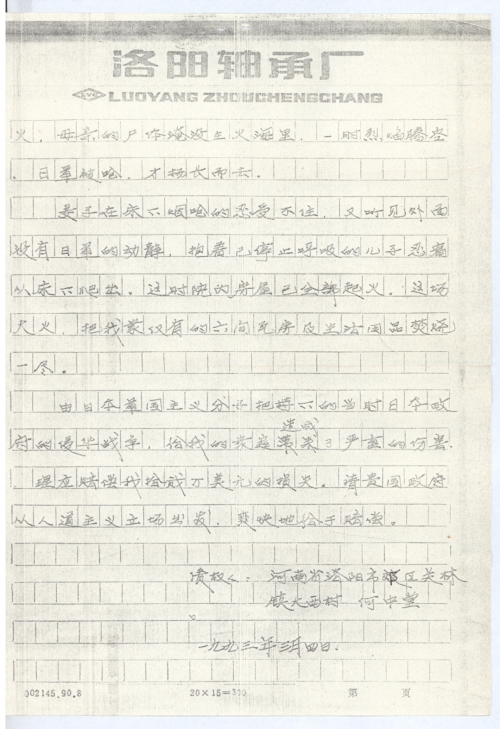 洛阳轴承厂
LUOYANG ZHOUCHENGCHANG
火，母亲的尸体淹没在火海里，一时烈焰腾空
，日军被呛，才扬长而去。
妻子在床下烟呛的忍受不住，又听见外面
没有日军的动静，抱着已停止呼吸的儿子忍痛
从床下爬出。这时院的房屋已全部起火。这场
大火，把我家仅有的六间瓦房及生活用品焚烧
一尽。
由日本军国主义分子把持下的当时日本政
府的侵华战争，给我的家庭造成了严重的伤害
，理应赔偿我拾贰万美元的损失。请贵国政府
从人道主义立场出发，爽快地给予赔偿。
债权人：河南省洛阳市郊区关林
镇大西村 何中堂
一九九三年三月四日.
002145.90.8 20×15=300 第 页